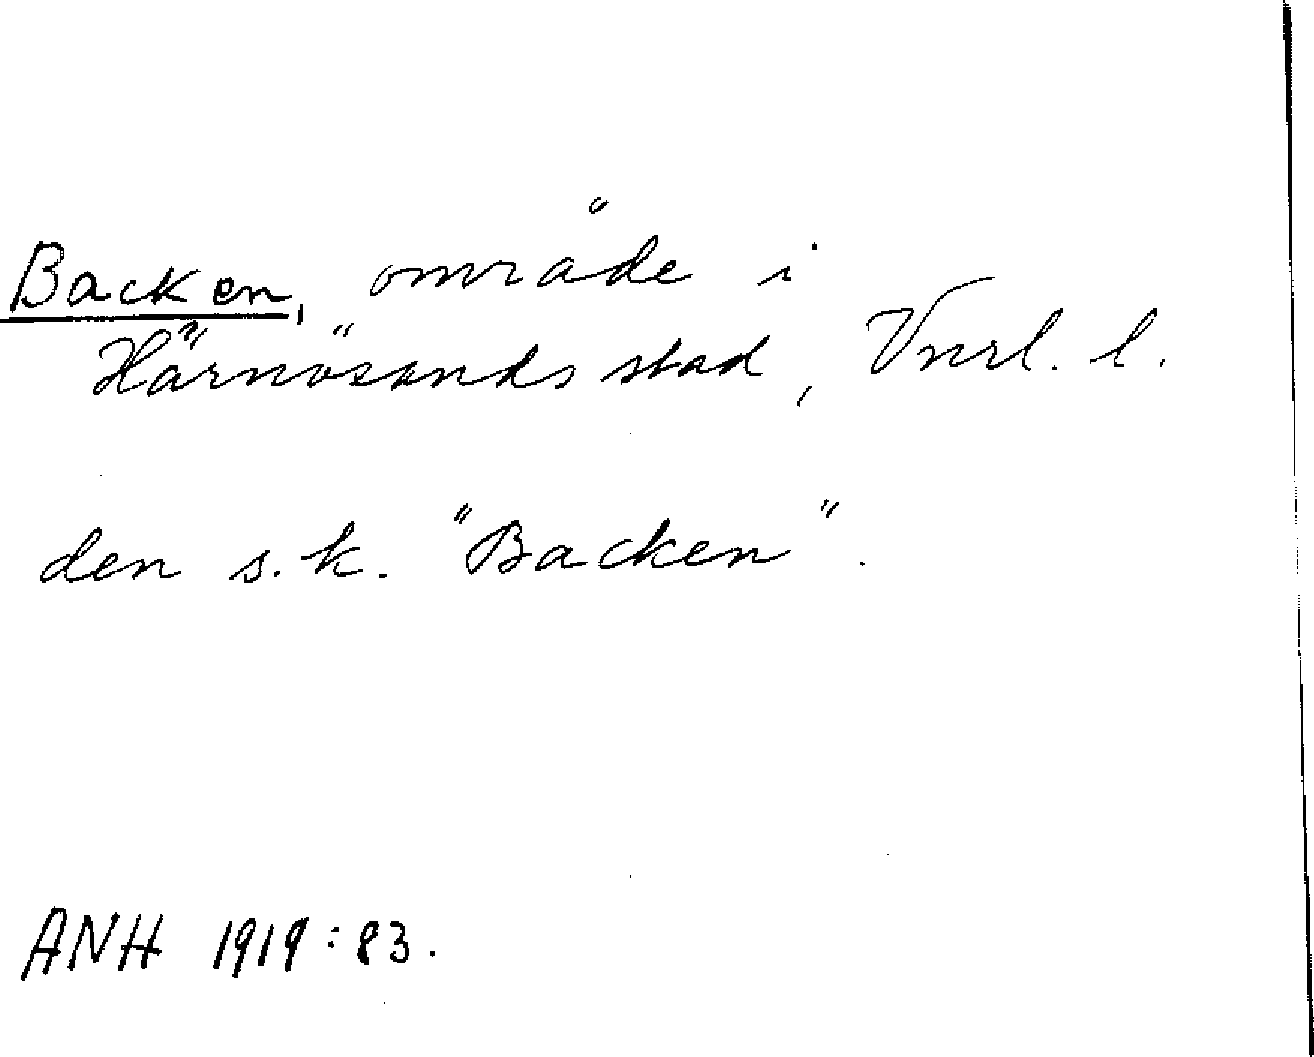 Backen, område i
Härnösands stad, Vnrl. l.
den s.k. "Backen".
ANH 1919:83.